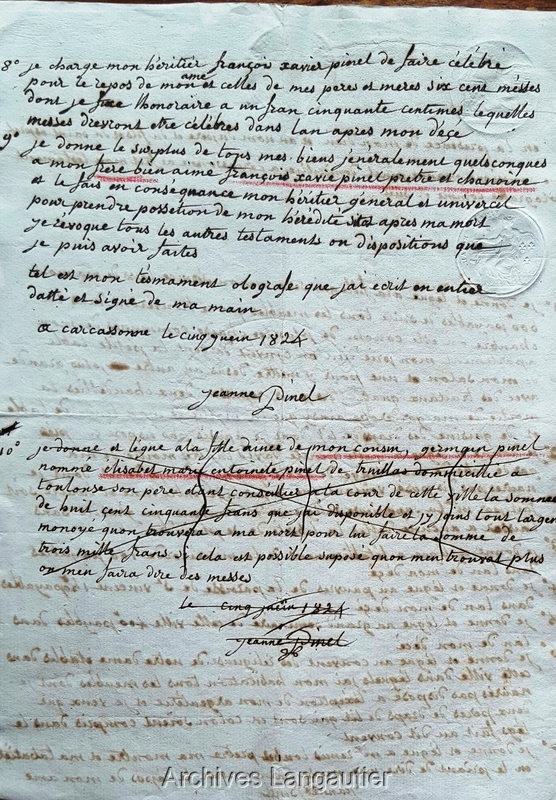 8° je charge mon héritier françois xavier pinel de faire célébré
pour le repos de mon ame et celles de mes peres et meres six cent messes
dont je fixe lhonoraire a un fran cinquante centimes lequelles
messes devront etre célébres dans lan apres mon deçe
9° je donne le surplus de tous mes biens jénéralement quelsconques
a mon frere bien aimé françois xavié pinel pretre et chanoine
et le fais en conséguance mon héritier général et univercél
pour prendre possétion de mon hérédité apres ma mort
je révoque tous les autres testaments ou dispositions que
je puis avoir faites
tel est mon tesmament olografe que jai ecrit en entier
datté et signé de ma main
a carcassonne le cinq juein 1824
jeanne Pinel
10° je donne et légue a la fille ainée de mon cousin, germain pinel
nommé elisabet marie entoinete pinel de truillas dommicilié a
toulouse son pere étant conseillier a la cour de cette ville la somme
de huit çent cinquante frans que jai disponible et jy joins tout largen
monoyé quon trouvera a ma mort pour lui faire la somme de
trois mille frans si cela est possible suposé quon men trouvat plus
on men faira dire des messes
le cinq juein 1824
jeanne Pinel
Archives Langautier